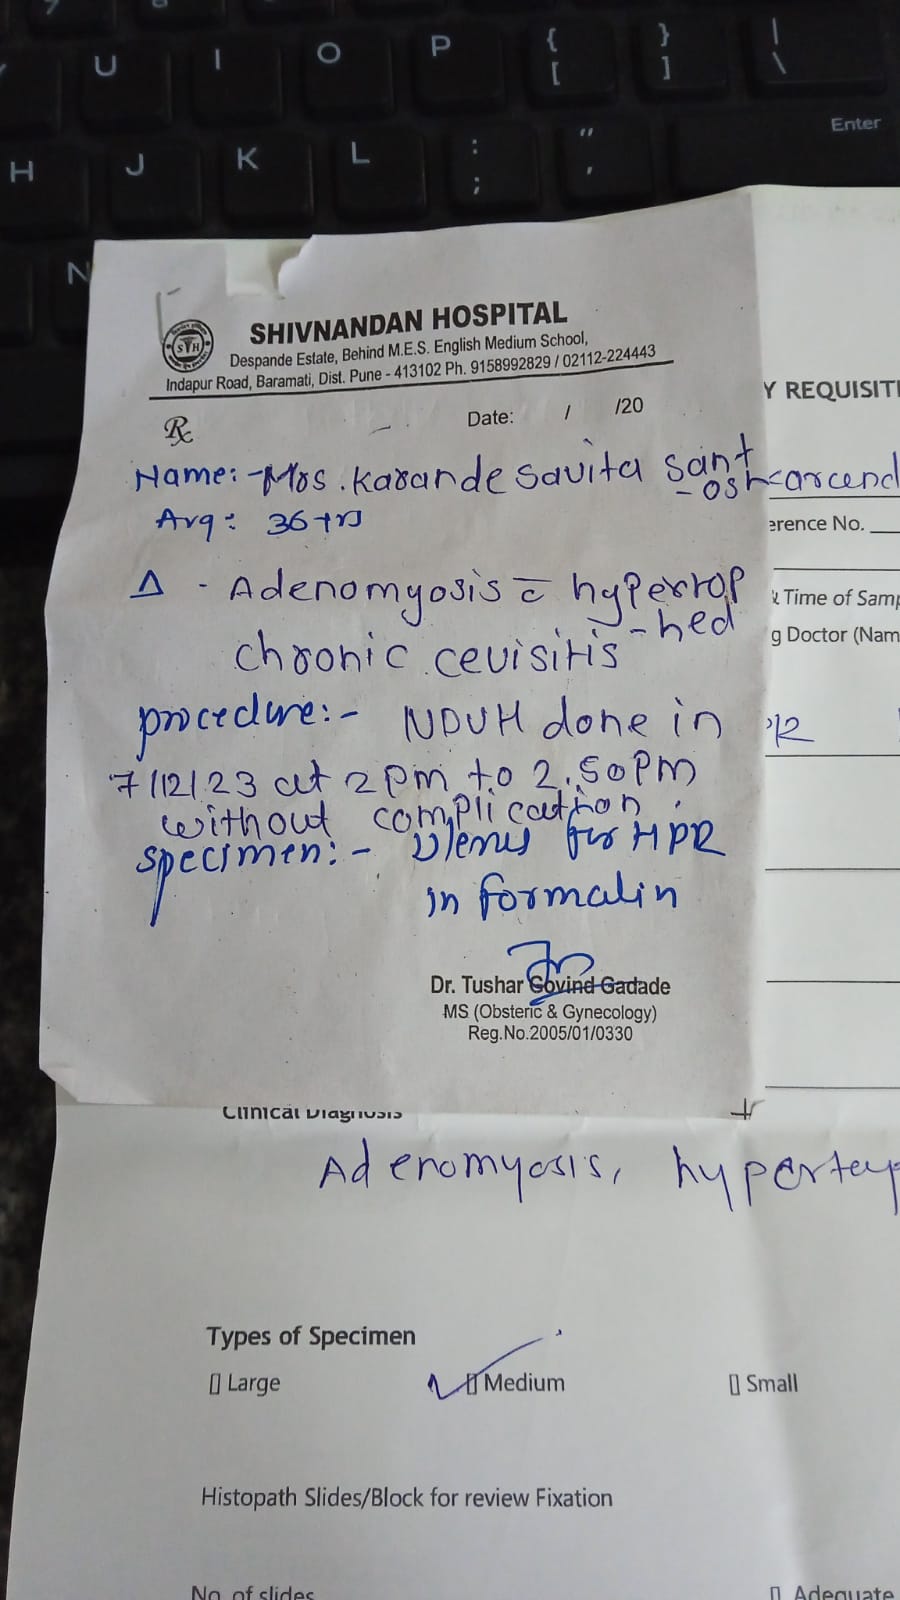 U I O P { [ } ] | \
H J K L : ; " ' Enter
N
SHIVNANDAN HOSPITAL
Despande Estate, Behind M.E.S. English Medium School,
Indapur Road, Baramati, Dist. Pune - 413102 Ph. 9158992829 / 02112-224443
Rx
Date: / /20
Y REQUISITI
Name:- Mrs. Karande Savita Sant
- osh
erence No.
36 yrs
Δ - Adenomyosis c̄ hypertrop
- hed
& Time of Samp
chronic cevisitis
g Doctor (Nam
procedure:- NDVH done in
7/12/23 at 2 pm to 2.50pm
without complication.
specimen:- Uterus for HPR
in formalin
Dr. Tushar Govind Gadade
MS (Obsteric & Gynecology)
Reg.No.2005/01/0330
Clinical Diagnosis
Adenomyosis,
Types of Specimen
Large Medium Small
Histopath Slides/Block for review Fixation
No. of slides
Adequate